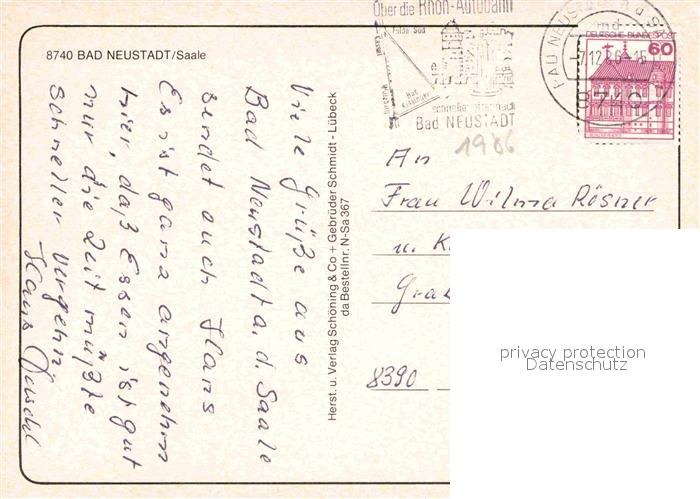 8740 BAD NEUSTADT/Saale
Über die Rhön-Autobahn
Fulda Süd
Bad
schneller
nach
Bad NEUSTADT
BAD NEUSTADT a d S
-7.12.86-15
8740
DEUTSCHE BUNDESPOST
60
1986
Viele Grüße aus
Bad Neustadt a. d. Saale
sendet euch Hans
Es ist ganz angenehm
hier, daß Essen ist gut
nur die Zeit müßte
schneller vergehn
Hans
Herst. u. Verlag Schöning & Co + Gebrüder Schmidt - Lübeck
da Bestellnr. N-Sa 367
An
Frau Wilma Rösner
u. K
Gra
8390
privacy protection
Datenschutz